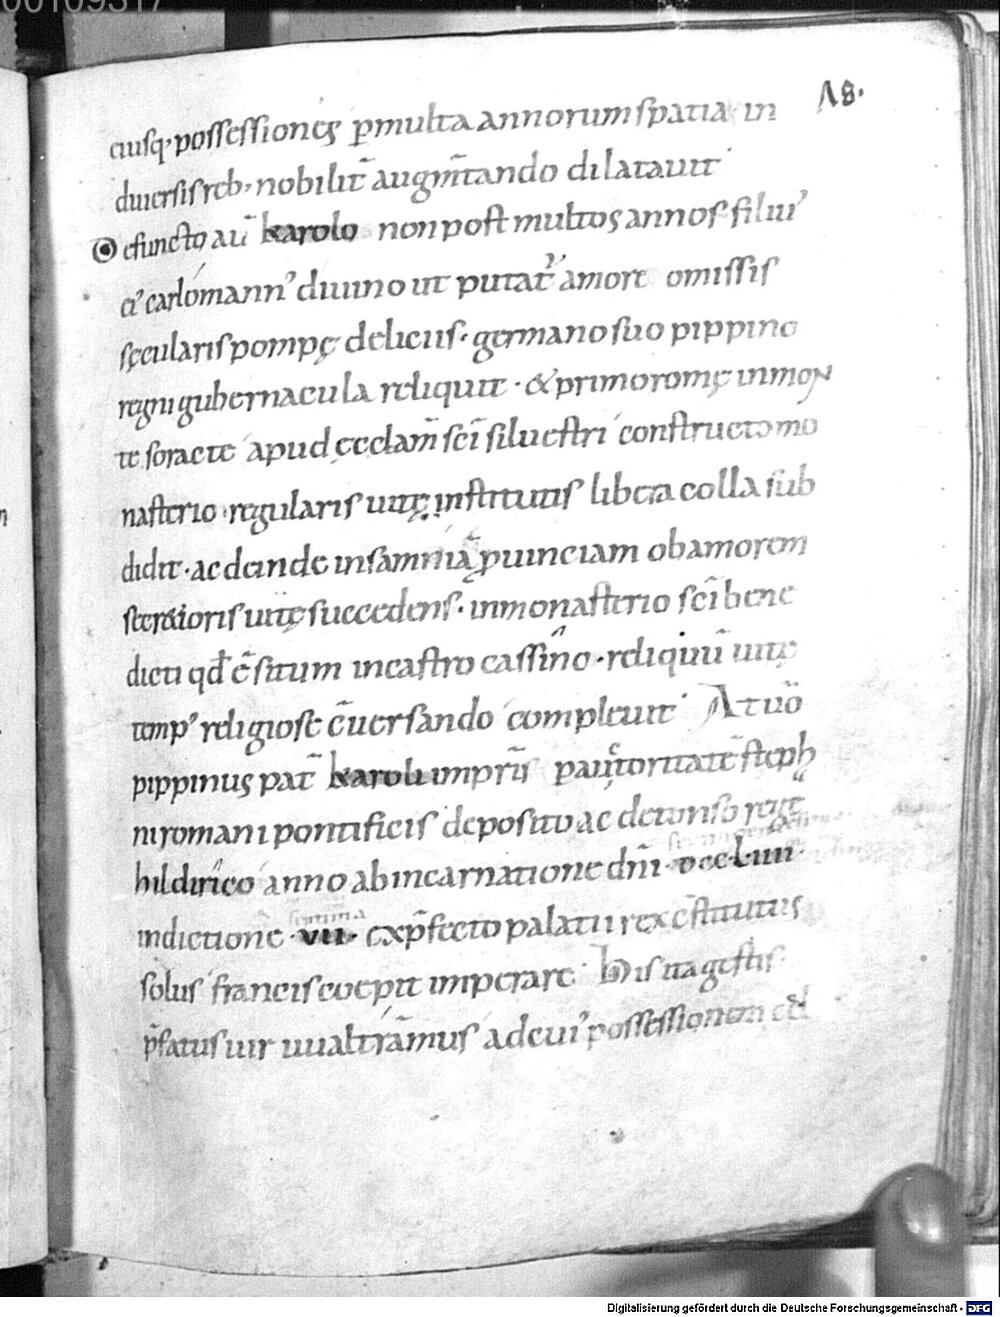 00109317
18.
eiusq; possessiones p multa annorum spatia in
diuersis reb; nobilit̄ augm̄tando dilatauit
Defuncto au̅ karolo non post multos annos filiu᾽
ei᾽ carlomann᾽ diuino ut putat᾽ amore omissis
sęcularis pompę deliciis · germano suo pippino
regni gubernacula reliquit · & primo romę in mon
te soracte apud ęcclam̄ sc̄i siluestri constructo mo
nasterio · regularis uitę institutis libera colla sub
didit · ac deinde in samniā ꝓuinciam ob amorem
sitū in castro cassino · reliquū uitę
temp᾽ religiose c̄uersando compleuit At uō
pippinus pat̄ karoli impr̄is
ni romani pontificis deposito ac detonso rege
hildirico anno ab incarnatione dn̄i · dccLiiii ·
indictione · vii · ex p̄fecto palatii rex c̄stitutus
solus francis coepit imperare · His ita gestis
p̄fatus uir uualtrāmus ad cui᾽ possessionem
Digitalisierung gefördert durch die Deutsche Forschungsgemeinschaft - DFG